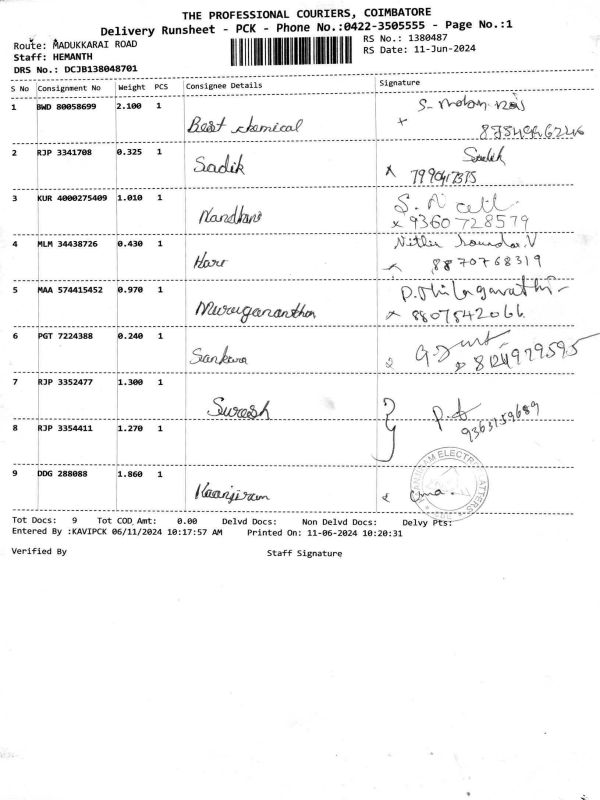 THE PROFESSIONAL COURIERS, COIMBATORE
Delivery Runsheet - PCK - Phone No.:0422-3505555 - Page No.:1
Route: MADUKKARAI ROAD
RS No.: 1380487
Staff: HEMANTH
RS Date: 11-Jun-2024
DRS No.: DCJB138048701
S No Consignment No Weight PCS Consignee Details Signature
1 BWD 80058699 2.100 1
Best chemical
2 RJP 3341708 0.325 1 Sadik
Sadik
3 KUR 4000275409 1.010 1
Nandhini x 9360728579
4 MLM 34438726 0.430 1
Hari 8870768319
5 MAA 574415452 0.970 1
Muruganandhan x 8807842066
6 PGT 7224388 0.240 1
Sankara 8124979595
7 RJP 3352477 1.300 1
Suresh
8 RJP 3354411 1.270 1 9363159689
9 DDG 288088 1.860 1
Kaanjiram
Tot Docs: 9 Tot COD Amt: 0.00 Delvd Docs: Non Delvd Docs: Delvy Pts:
Entered By :KAVIPCK 06/11/2024 10:17:57 AM Printed On: 11-06-2024 10:20:31
Verified By Staff Signature